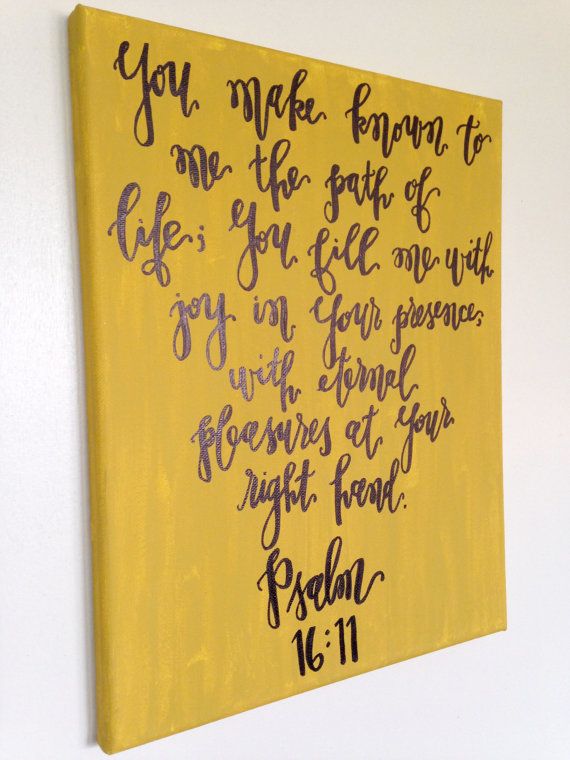 You make known to
me the path of
life; You fill me with
joy in Your presence,
with eternal
pleasures at Your
right hand.
Psalm
16:11